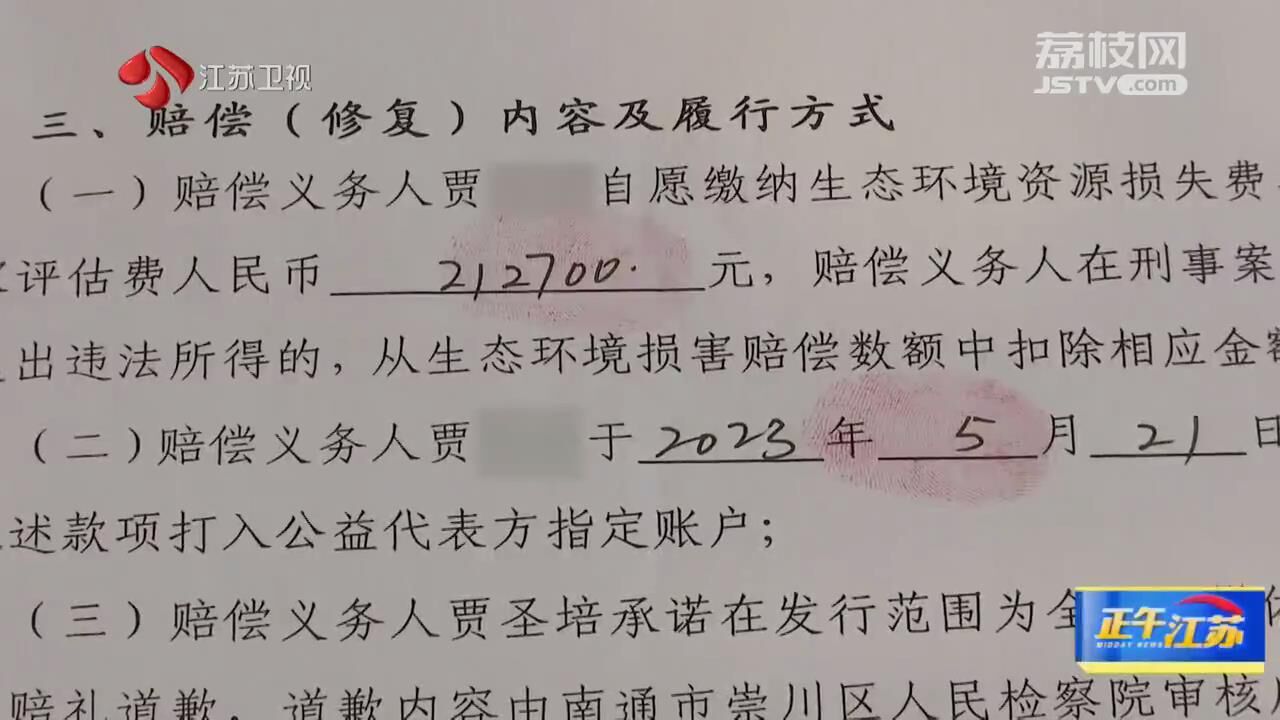 江苏卫视
荔枝网
JSTV.com
三、赔偿（修复）内容及履行方式
（一）赔偿义务人贾 自愿缴纳生态环境资源损失费
评估费人民币 212700. 元，赔偿义务人在刑事案
出违法所得的，从生态环境损害赔偿数额中扣除相应金额
（二）赔偿义务人贾 于 2023 年 5 月 21 日
述款项打入公益代表方指定账户；
（三）赔偿义务人贾圣培承诺在发行范围为全
赔礼道歉，道歉内容由南通市崇川区人民检察院审核
正午江苏
MIDDAY NEWS